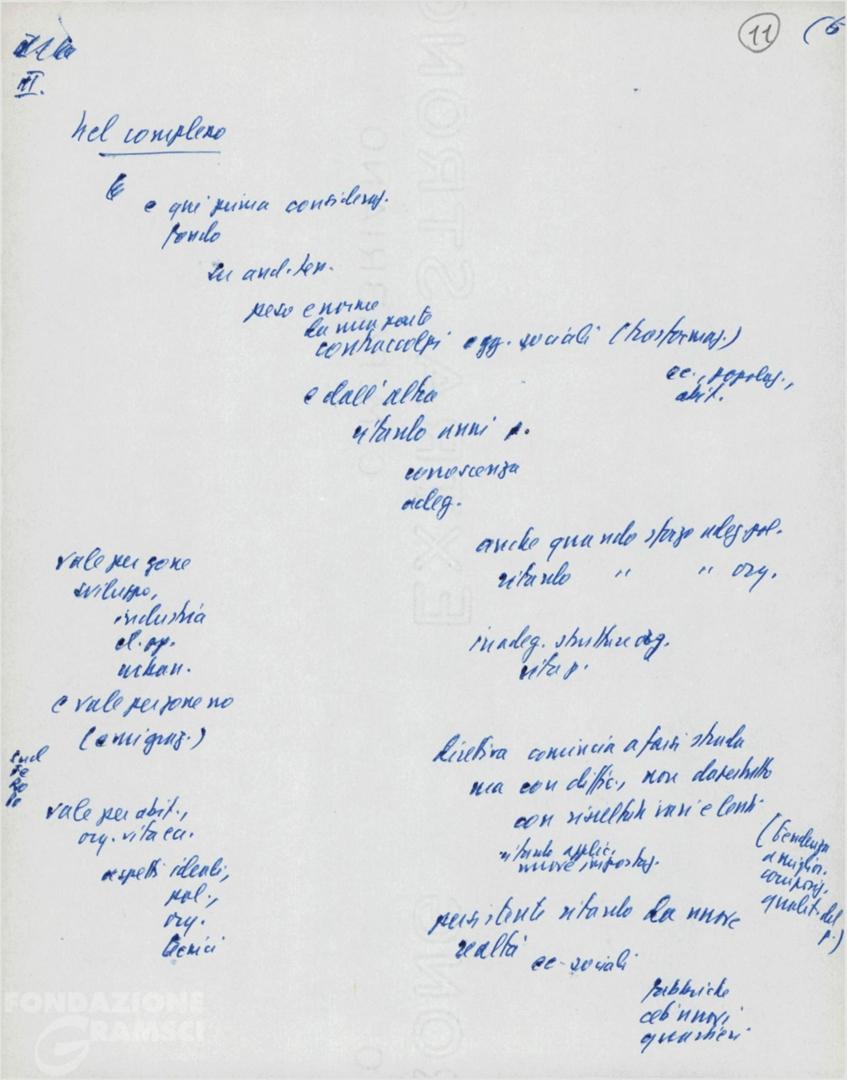 11
(5
III.
Nel complesso
e qui prima consideraz.
fondo
su and. tess.
peso enorme
da una parte
contraccolpi ogg. sociali (trasformaz.)
ec., popolaz.,
abit.
e dall'altra
ritardo nuni p.
conoscenza
adeg.
anche quando sforzo adeg. pol.
ritardo " " org.
inadeg. strutture org.
vita p.
vale per zone
sviluppo,
industria
cl. op.
urban.
e vale per zone no
(emigraz.)
vale per abit.,
org. vita ec.
aspetti ideali,
pol.,
org.
tecnici
direttiva comincia a farsi strada
ma con diffic., non dappertutto
con risultati vari e lenti
ritardo applic.
nuove impostaz.
(tendenza
a miglior.
composiz.
qualit. del
p.)
persistente ritardo da nuove
realtà
ec-sociali
fabbriche
ceti nuovi
quartieri
EXTRA STRONG
FONDAZIONE
GRAMSCI